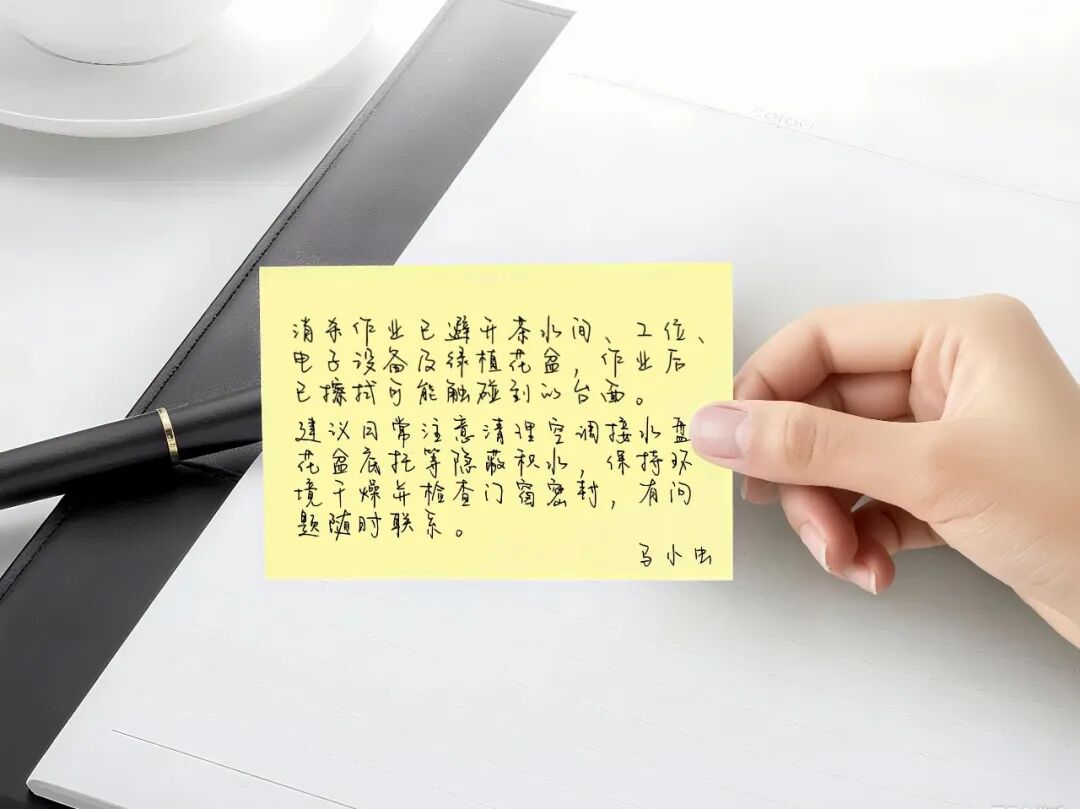 消杀作业已避开茶水间、工位、
电子设备及绿植花盆，作业后
已擦拭可能触碰到的台面。
建议日常注意清理空调接水盘
花盆底托等隐蔽积水，保持环
境干燥并检查门窗密封，有问
题随时联系。
马小虫